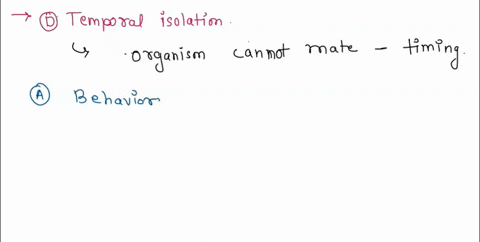 → Ⓓ Temporal isolation.
↳ ·organism cannot mate - timing.
Ⓐ Behavior